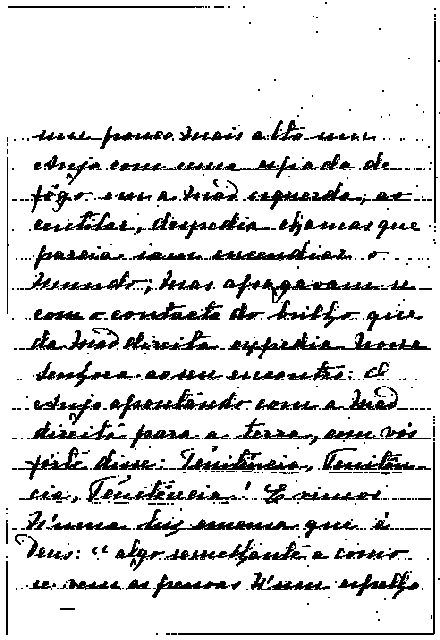 um pouco mais alto um
Anjo com uma espada de
fôgo em a mão esquerda; ao
cintilar, despedia chamas que
parecia iam encendiar o
mundo; mas apagavam-se
com o contacto do brilho que
da mão direita expedia Nossa
Senhora ao seu encontro: O
Anjo apontando com a mão
direita para a terra, com vós
forte disse: Penitência, Penitên-
cia, Penitência! E vimos
n'uma luz emensa que é
Deus: "algo semelhante a como
se vem as pessoas n'um espelho